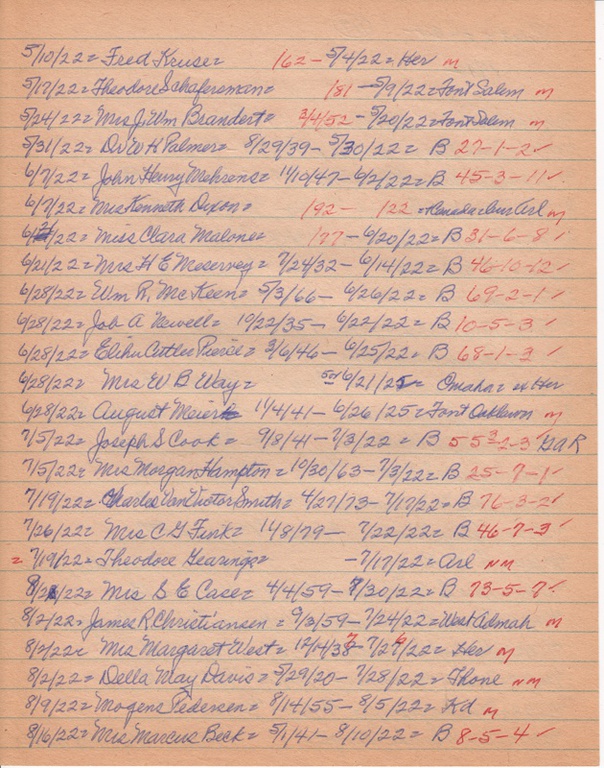 5/10/22 = Fred Kruse = 162 - 5/4/22 = Her m
5/17/22 = Theodore Schafersman = 181 - 5/9/22 = Font Salem m
5/24/22 = Mrs J. Wm Brandert = 3/4/52 - 5/20/22 = Font Salem m
5/31/22 = Dr W H Palmer = 8/29/39 - 5/30/22 = B 27-1-2 ✓
6/7/22 = John Henry Mehrens = 1/10/47 - 6/2/22 = B 45-3-11 ✓
6/7/22 = Mrs Kenneth Dixon = 192 - 122 = Arl m
6/ /22 = Miss Clara Malone = 177 - 6/20/22 = B 31-6-8 ✓
6/21/22 = Mrs H E Meservey = 7/24/32 - 6/14/22 = B 46-10-12 ✓
6/28/22 = Wm R. McKeen = 5/3/66 - 6/26/22 = B 69-2-1 ✓
6/28/22 = Job A Newell = 10/22/35 - 6/22/22 = B 10-5-3 ✓
6/28/22 = Elihu Cutler Pierce = 3/6/46 - 6/25/22 = B 68-1-3 ✓
6/28/22 = Mrs W B Way = 6/21/2 = Omaha = ex Her
6/28/22 = August Meier = 1/4/41 - 6/26/25 = Font m
7/5/22 = Joseph S Cook = 9/8/41 - 7/3/22 = B 55-2-3 GAR
7/5/22 = Mrs Morgan Hampton = 10/30/63 - 7/3/22 = B 25-7-1 ✓
7/19/22 = Charles VanVictor Smith = 4/27/73 - 7/17/22 = B 76-3-2 ✓
7/26/22 = Mrs C G Fink = 11/8/79 - 7/22/22 = B 46-7-3 ✓
= 7/19/22 = Theodore Gearing = - 7/17/22 = Arl nm
8/2/22 = Mrs S E Case = 4/4/59 - 7/30/22 = B 73-5-7 ✓
8/2/22 = James R Christiansen = 9/3/59 - 7/24/22 = West Admah m
8/2/22 = Mrs Margaret West = 12/14/38 - 7/2 /22 = Her m
8/2/22 = Della May Davis = 5/29/20 - 7/28/22 = Thone nm
8/9/22 = Mogens Pedersen = 8/14/55 - 8/5/22 = Kd m
8/16/22 = Mrs Marcus Beck = 5/1/41 - 8/10/22 = B 8-5-4 ✓